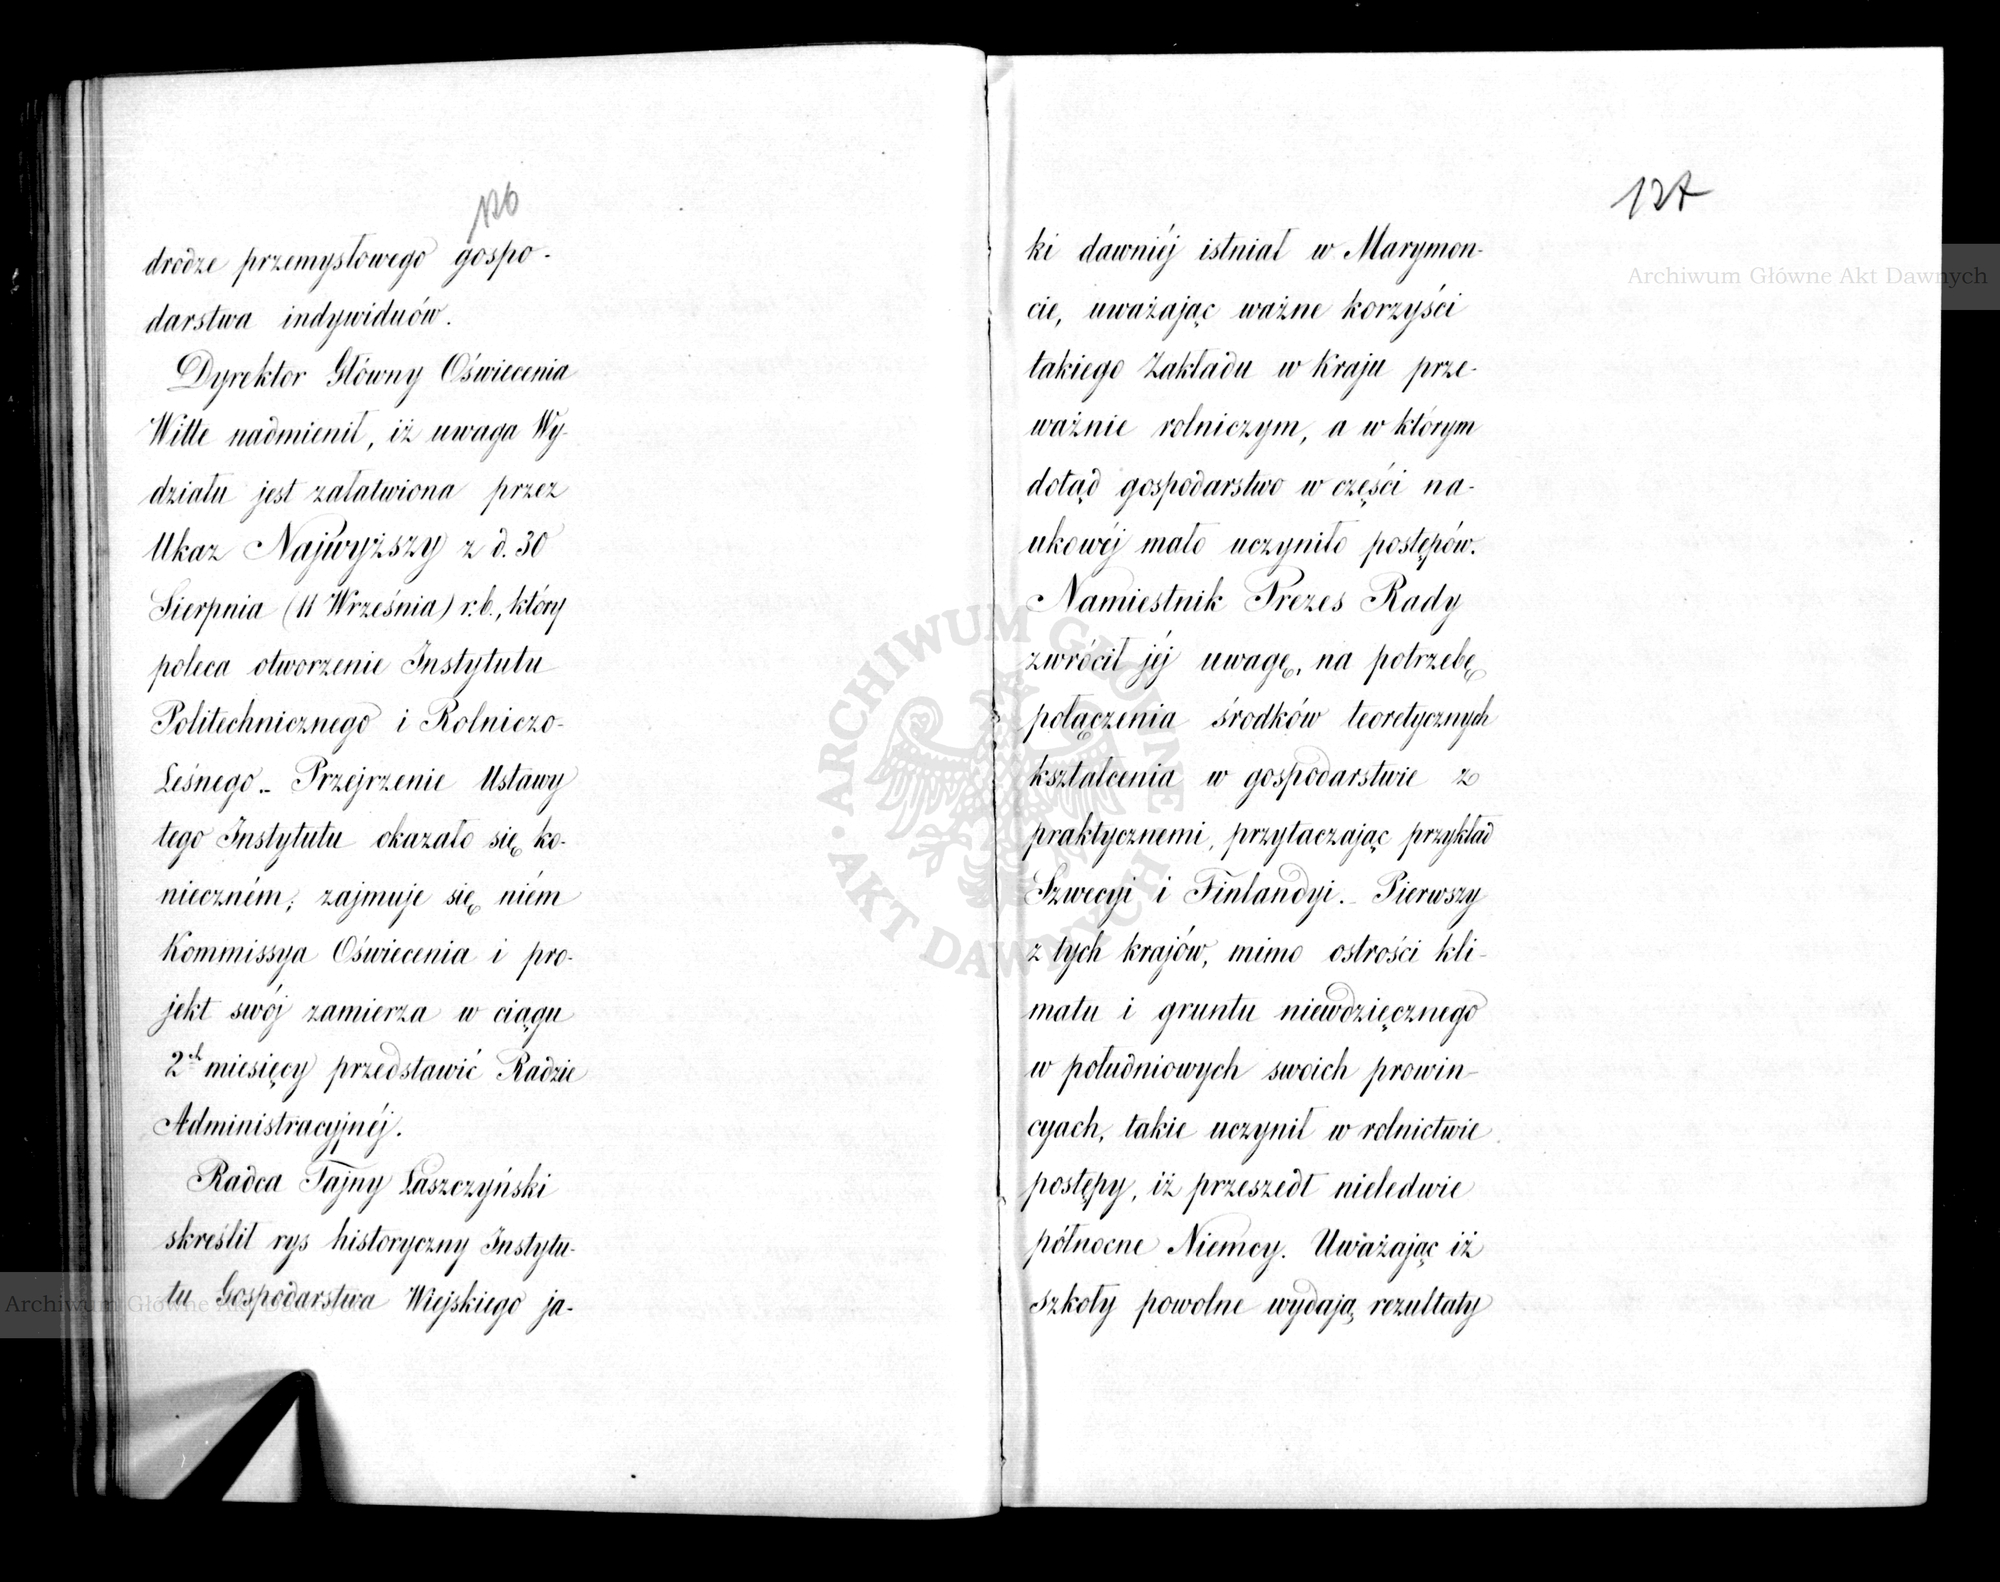 126
drodze przemysłowego gospo-
darstwa indywiduów.
Dyrektor Główny Oświecenia
Witte nadmienił, iż uwaga Wy-
działu jest załatwiona przez
Ukaz Najwyższy z d. 30
Sierpnia (11 Września) r. b., który
poleca otworzenie Instytutu
Politechnicznego i Rolniczo-
Leśnego. Przejrzenie Ustawy
tego Instytutu okazało się ko-
nieczném; zajmuje się niém
Kommissya Oświecenia i pro-
jekt swój zamierza w ciągu
2ch miesięcy przedstawić Radzie
Administracyjnéj.
Radca Tajny Łaszczyński
skreślił rys historyczny Instytu-
tu Gospodarstwa Wiejskiego ja-
127
ki dawniéj istniał w Marymon-
cie, uważając ważne korzyści
takiego Zakładu w Kraju prze-
ważnie rolniczym, a w którym
dotąd gospodarstwo w części na-
ukowéj mało uczyniło postępów.
Namiestnik Prezes Rady
zwrócił jéj uwagę, na potrzebę
połączenia środków teoretycznych
kształcenia w gospodarstwie z
praktycznemi, przytaczając przykład
Szwecyi i Finlandyi. Pierwszy
z tych krajów, mimo ostrości kli-
matu i gruntu niewdzięcznego
w południowych swoich prowin-
cyach, takie uczynił w rolnictwie
postępy, iż przeszedł nieledwie
północne Niemcy. Uważając iż
szkoły powolne wydają rezultaty
Archiwum Główne Akt Dawnych
Archiwum Główne Akt Dawnych
ARCHIWUM GŁÓWNE AKT DAWNYCH